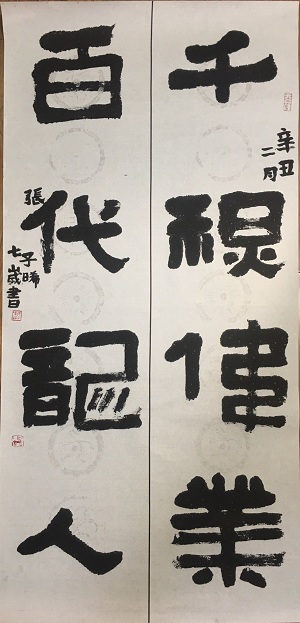 千偉業
辛丑
二月
百代人
張
子晞
七歲書